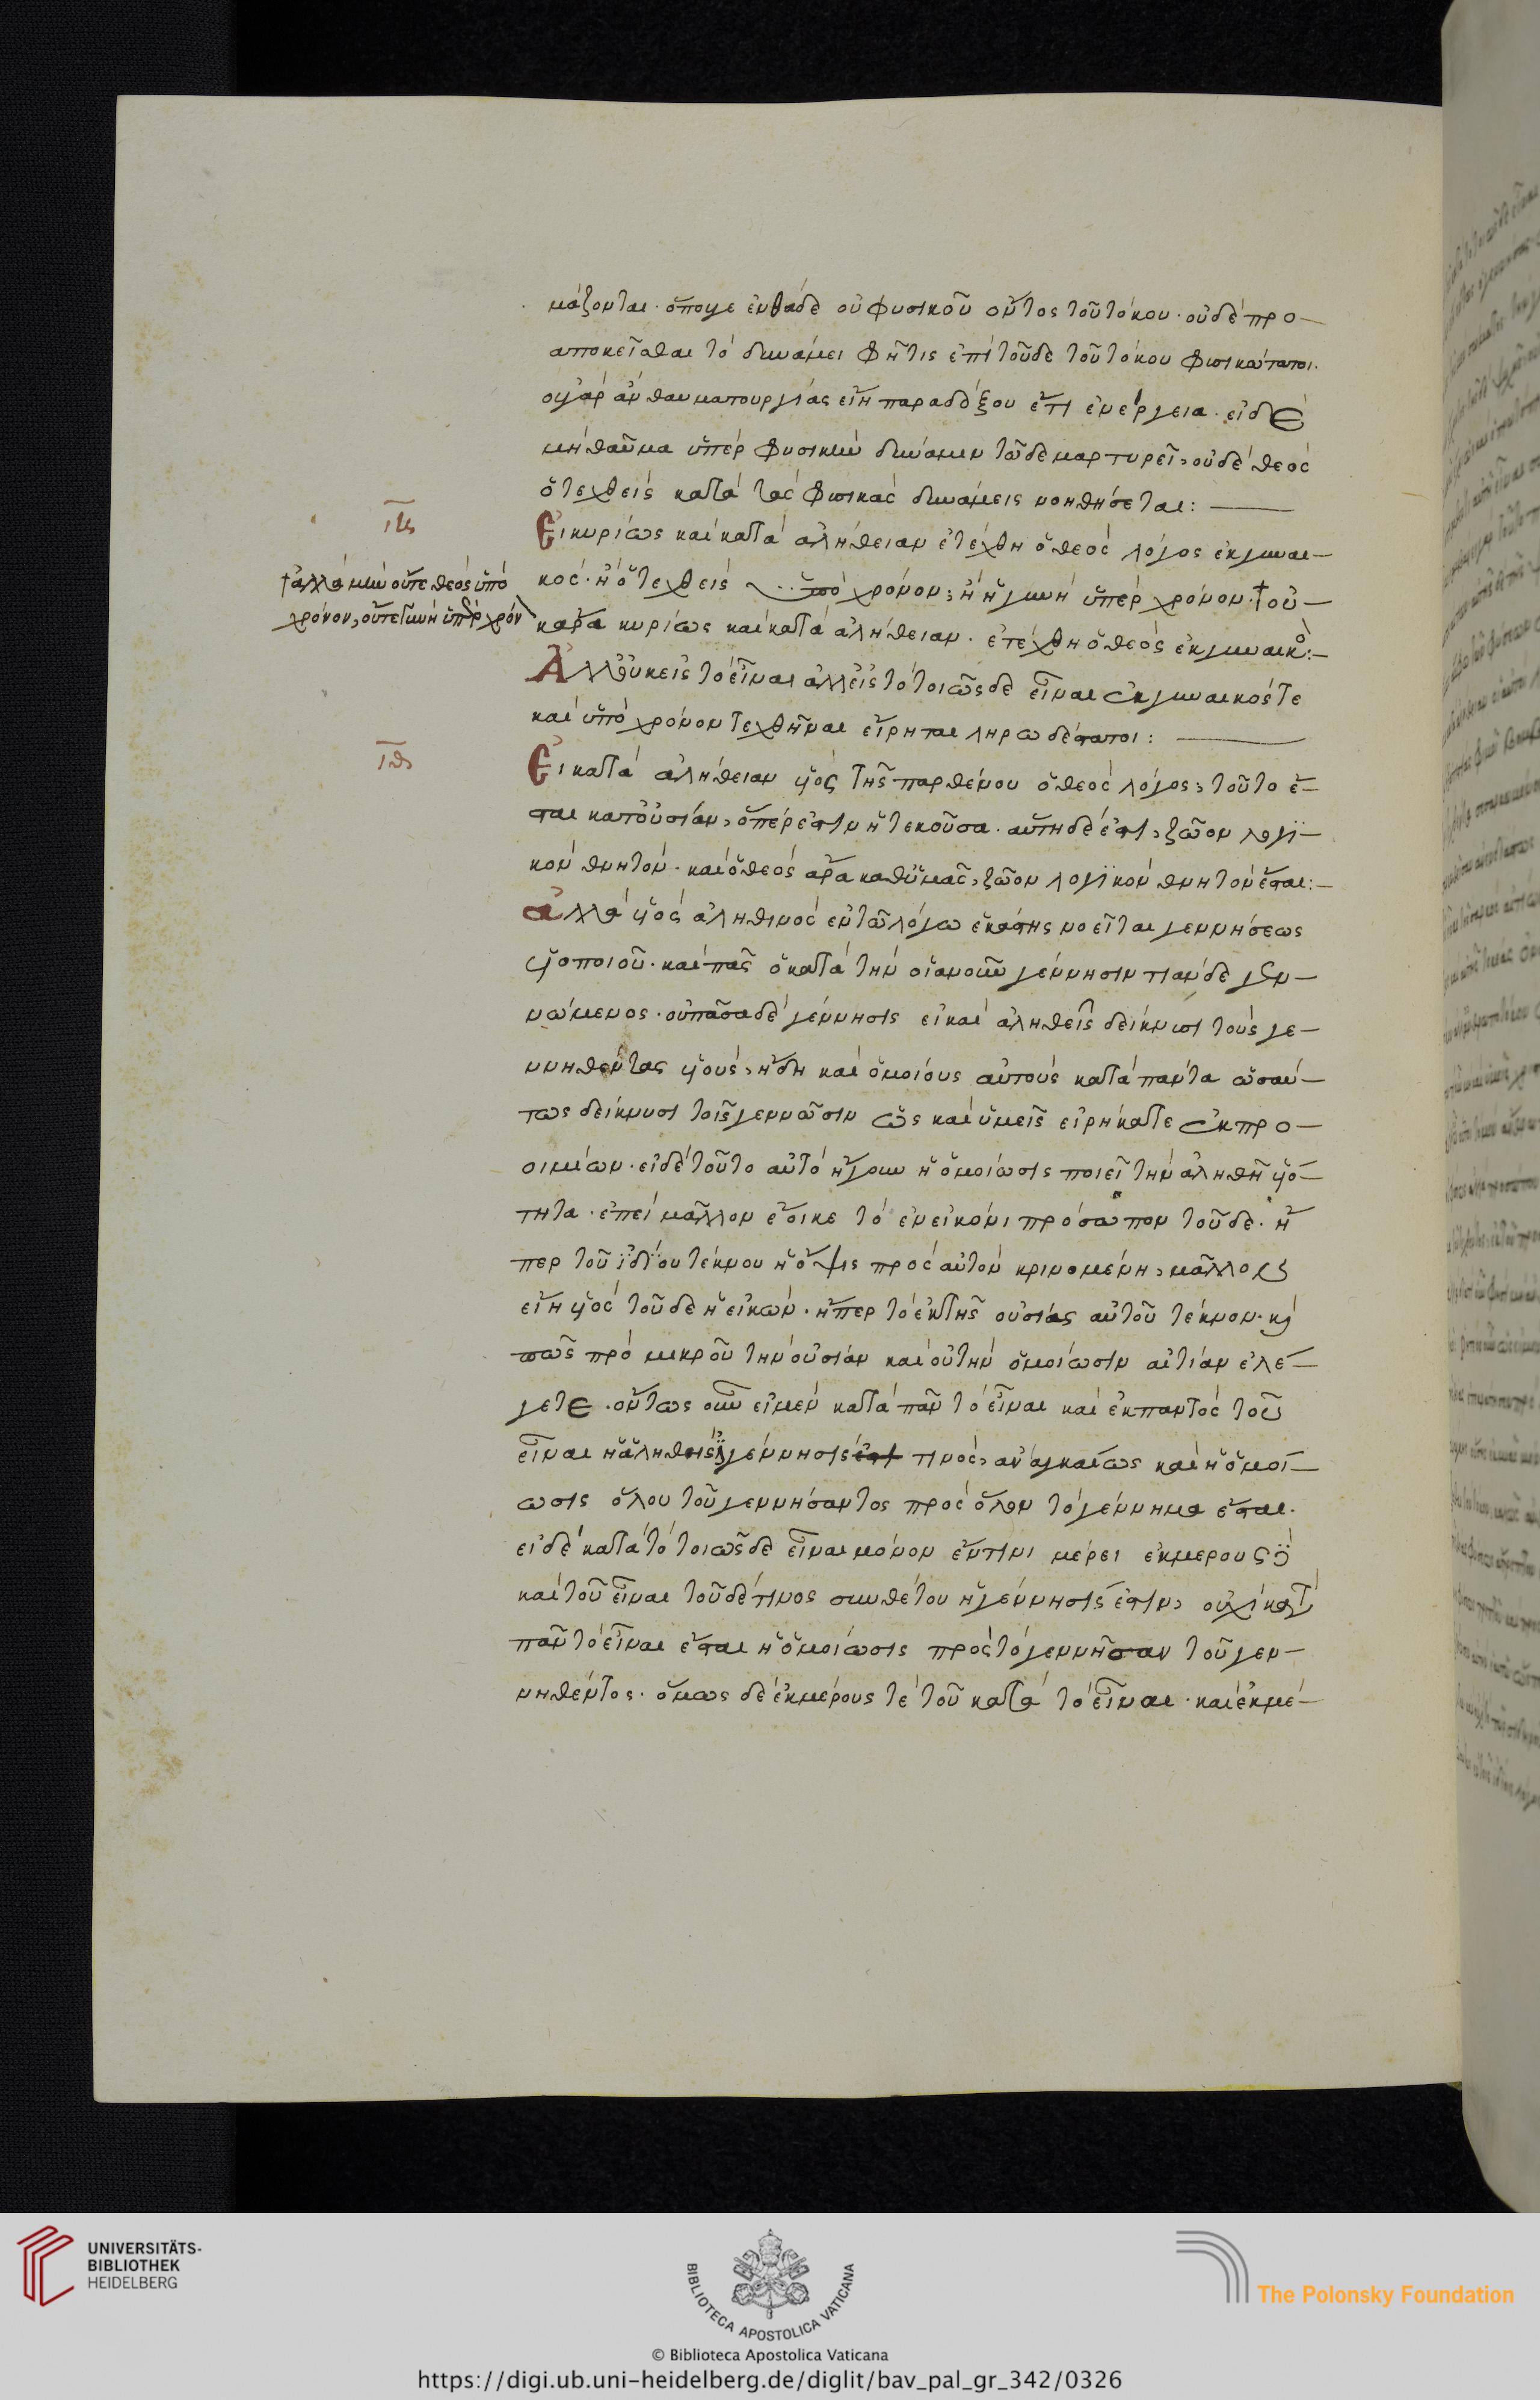 μάζονται· ὅπουγε ἐνθάδε οὐ φυσικοῦ ὄντος τοῦ τόκου· οὐδὲ προ-
αποκεῖσθαι τὸ δυνάμει φῄτις ἐπὶ τοῦδε τοῦ τόκου φυσικώτατοι.
οὐ γὰρ ἂν θαυματουργίας εἴη παραδόξου ἔτι ἐνέργεια· εἰ δὲ
μὴ θαῦμα ὑπὲρ φυσικὴν δύναμιν τῶδε μαρτυρεῖ, οὐδὲ θεὸς
ὁ τεχθεὶς κατὰ τὰς φυσικὰς δυνάμεις νοηθήσεται:
ιη
Εἰ κυρίως καὶ κατὰ ἀλήθειαν ἐτέχθη ὁ θεὸς λόγος ἐκ γυναι-
κός· ἢ ὁ τεχθεὶς ὑπὸ χρόνον, ἢ ἡ γυνὴ ὑπὲρ χρόνον· † οὐ-
† ἀλλὰ μὴν οὔτε θεὸς ὑπὸ
χρόνον, οὔτε γυνὴ ὑπὲρ χρόν
κἄρα κυρίως καὶ κατὰ ἀλήθειαν· ἐτέχθη ὁ θεὸς ἐκ γυναικό:-
Ἀλλ' οὐκ εἰς τὸ εἶναι ἀλλ' εἰς τὸ τοιῶςδε εἶναι ἐκ γυναικός τε
καὶ ὑπὸ χρόνον τεχθῆναι εἴρηται ληρωδέστατοι:
ιθ
Εἰ κατὰ ἀλήθειαν υἱὸς τῆς παρθένου ὁ θεὸς λόγος, τοῦτο ἔ-
σται κατ' οὐσίαν, ὅπερ ἐστιν ἡ τεκοῦσα· αὕτη δέ ἐστι, ζῶον λογϊ-
κὸν θνητόν· καὶ ὁ θεὸς ἄρα καθ' ὑμᾶς, ζῶον λογϊκὸν θνητὸν ἔσται:-
ἀλλὰ υἱὸς ἀληθινὸς ἐν τῶ λόγω ἑκάστης νοεῖται γεννήσεως
υἱοποιοῦ· καὶ πᾶς ὁ κατὰ τὴν οἵαν οὖν γέννησιν τιανδε γεν-
νώμενος· οὐ πᾶσα δὲ γέννησις εἰ καὶ ἀληθεῖς δείκνυσι τοὺς γε-
ννηθέντας υἱοὺς, ἤδη καὶ ὁμοίους αὐτοὺς κατὰ πάντα ὡσαύ-
τως δείκνυσι τοῖς γεννῶσιν ὡς καὶ ὑμεῖς εἰρήκατε ἐκ προ-
οιμίων· εἰ δὲ τοῦτο αὐτὸ ἤγουν ἡ ὁμοίωσις ποιεῖ τὴν ἀληθῆ υἱό-
τητα· ἐπεὶ μᾶλλον ἔοικε τὸ ἐν εἰκόνι πρόσωπον τοῦδε· ἤ
περ τοῦ ἰδίου τέκνου ἡ ὄψις πρὸς αὐτὸν κρινομένη, μᾶλλον
εἴη υἱὸς τοῦδε ἡ εἰκών· ἤπερ τὸ ἐκ τῆς οὐσίας αὐτοῦ τέκνον· καὶ
πῶς πρὸ μικροῦ τὴν οὐσίαν καὶ οὐ τὴν ὁμοίωσιν αἰτίαν ἐλέ-
γετε· οὕτως οὖν εἰ μὲν κατὰ πᾶν τὸ εἶναι καὶ ἐκ παντὸς τοῦ
εἶναι ἡ ἀληθὴς γέννησις ἐστι τινὸς, ἀναγκαίως καὶ ἡ ὁμοί-
ωσις ὅλου τοῦ γεννήσαντος πρὸς ὅλον τὸ γέννημα ἔσται.
εἰ δὲ κατὰ τὸ τοιῶςδε εἶναι μόνον ἔν τινι μέρει ἐκ μέρους
καὶ τοῦ εἶναι τοῦδέ τινος συνθέτου ἡ γέννησίς ἐστιν, οὐχὶ κατὰ
πᾶν τὸ εἶναι ἔσται ἡ ὁμοίωσις πρὸς τὸ γεννῆσαν τοῦ γεν-
νηθέντος· ὅμως δὲ ἐκ μέρους τὲ τοῦ κατὰ τὸ εἶναι· καὶ ἐκ μέ-
UNIVERSITÄTS-
BIBLIOTHEK
HEIDELBERG
BIBLIOTECA APOSTOLICA VATICANA
The Polonsky Foundation
© Biblioteca Apostolica Vaticana
https://digi.ub.uni-heidelberg.de/diglit/bav_pal_gr_342/0326